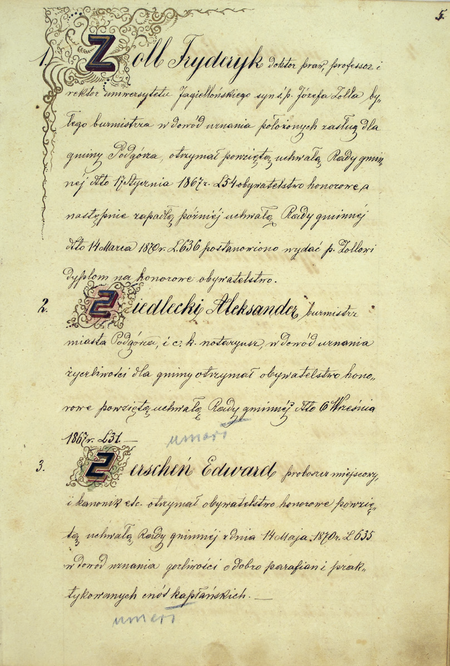 5.
1. Zoll Frydryk doktor praw, professor i
rektor uniwersytetu Jagiellońskiego syn ś.p. Józefa Zolla by-
łego burmistrza w dowód uznania położonych zasług dla
gminy Podgórza, otrzymał powziętą uchwałą Rady gmin-
néj dto 17 Stycznia 1867 r. L 54 obywatelstwo honorowe, a
następnie zapadłą później uchwałą Rady gminnéj
dto 14 Marca 1870 r. L 636 postanowiono wydać p. Zollowi
Dyplom na honorowe obywatelstwo.
2. Ziedlecki Aleksander, burmistrz
miasta Podgórza, i c: k. notaryusz, w dowód uznania
życzliwości dla gminy otrzymał obywatelstwo hono-
rowe powziętą uchwałą Rady gminnéj dto 6 Września
1867 r. L 31. —
umarł
3. Zerscheń Edward, proboszcz miejscowy,
i kanonik etc. otrzymał obywatelstwo honorowe powzię-
tą uchwałą Rady gminnéj z dnia 14 Maja 1870 r. L 635
w dowód uznania gorliwości o dobro parafian i prak-
tykowanych cnót kapłańskich. —
umarł